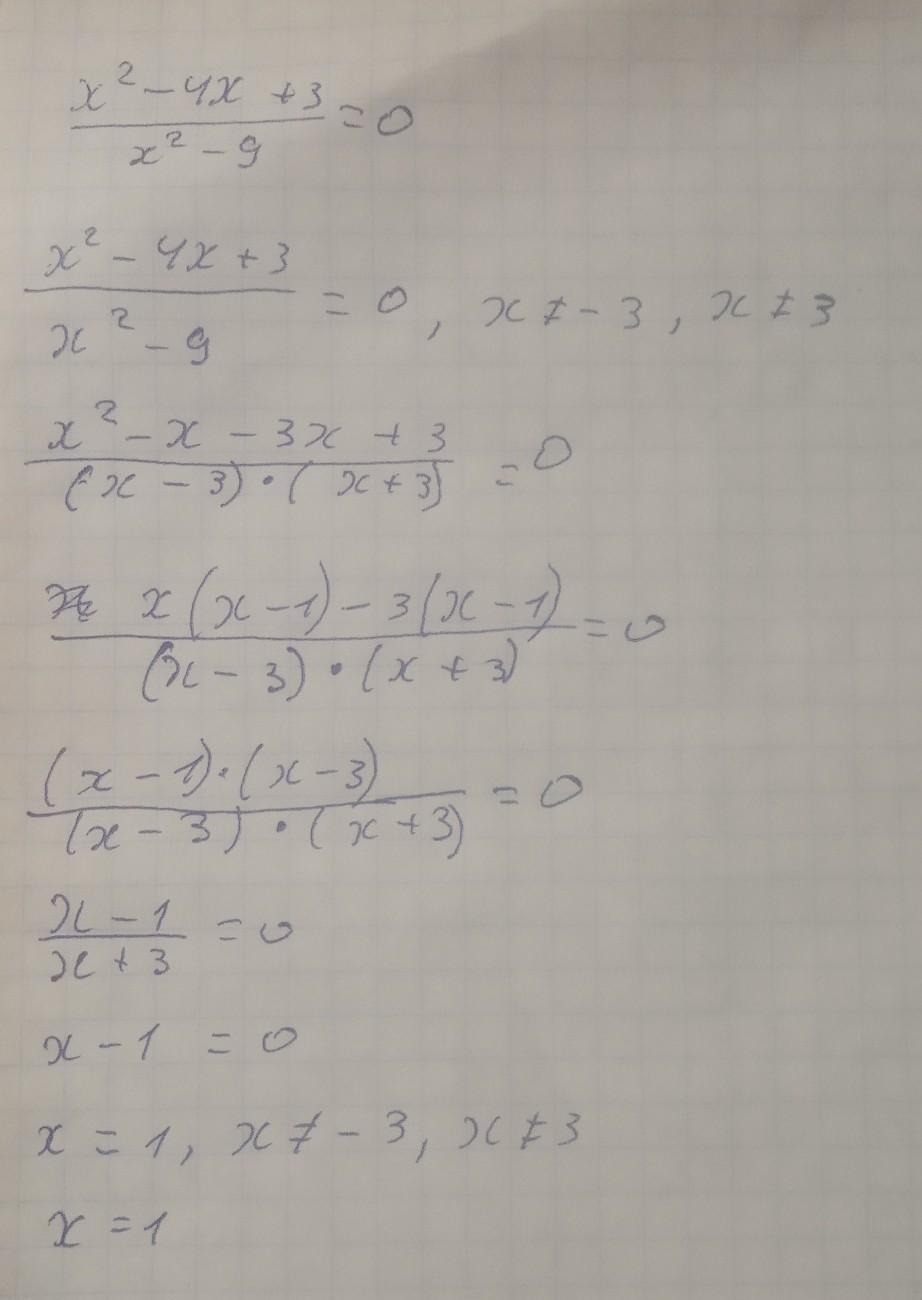 (x² - 4x + 3)/(x² - 9) = 0
(x² - 4x + 3)/(x² - 9) = 0, x ≠ -3, x ≠ 3
(x² - x - 3x + 3)/((x - 3)·(x + 3)) = 0
(x(x - 1) - 3(x - 1))/((x - 3)·(x + 3)) = 0
((x - 1)·(x - 3))/((x - 3)·(x + 3)) = 0
(x - 1)/(x + 3) = 0
x - 1 = 0
x = 1, x ≠ -3, x ≠ 3
x = 1